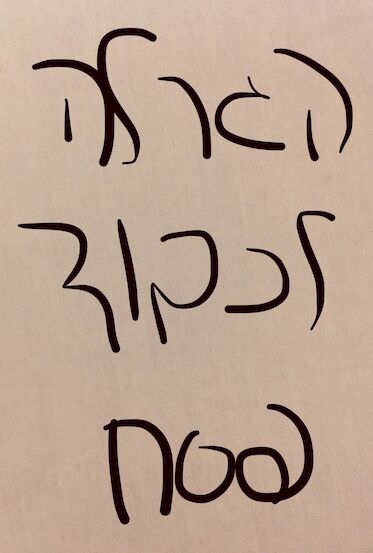 הגרלה
לכבוד
פסח